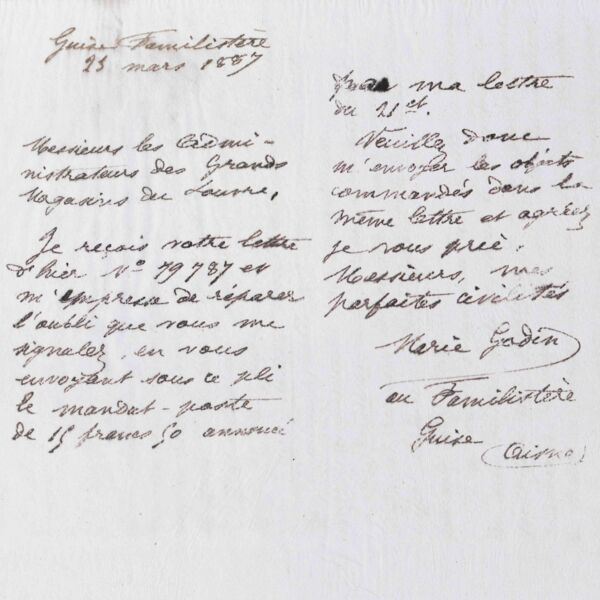 Guise Familistère
23 mars 1887
Messieurs les Admi-
nistrateurs des Grands
Magasins du Louvre,
Je reçois votre lettre
d'hier No 79787 et
m'empresse de réparer
l'oubli que vous me
signalez, en vous
envoyant sous ce pli
le mandat-poste
de 15 francs 50 annoncé
ma lettre
du 21 ct.
Veuillez donc
m'envoyer les objets
commandés dans la
même lettre et agréez
je vous prie,
Messieurs, mes
parfaites civilités
Marie Godin
au Familistère
Guise
(Aisne)